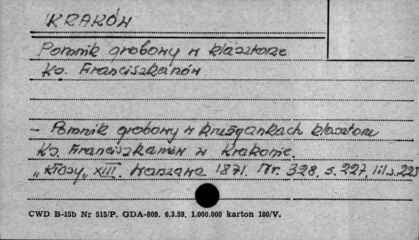 KRAKÓW
Pomnik grobowy w klasztorze
Ks. Franciszkanów
- Pomnik grobowy w krużgankach klasztoru
Ks. Franciszkanów w Krakowie.
„Kłosy„ XIII. Warszawa 1871. Nr. 328, s. 227, il. s. 225
CWD B-15b Nr 515/P. GDA-809. 6.3.59. 1.000.000 karton 180/V.